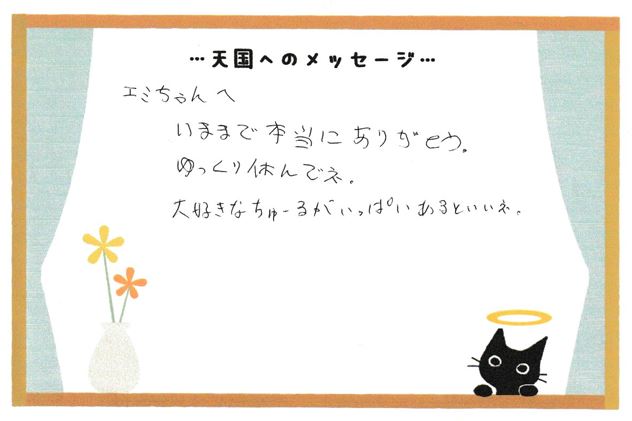 …天国へのメッセージ…
エミちゃんへ
いままで本当にありがとう。
ゆっくり休んでネ。
大好きなちゅーるがいっぱいあるといいネ。